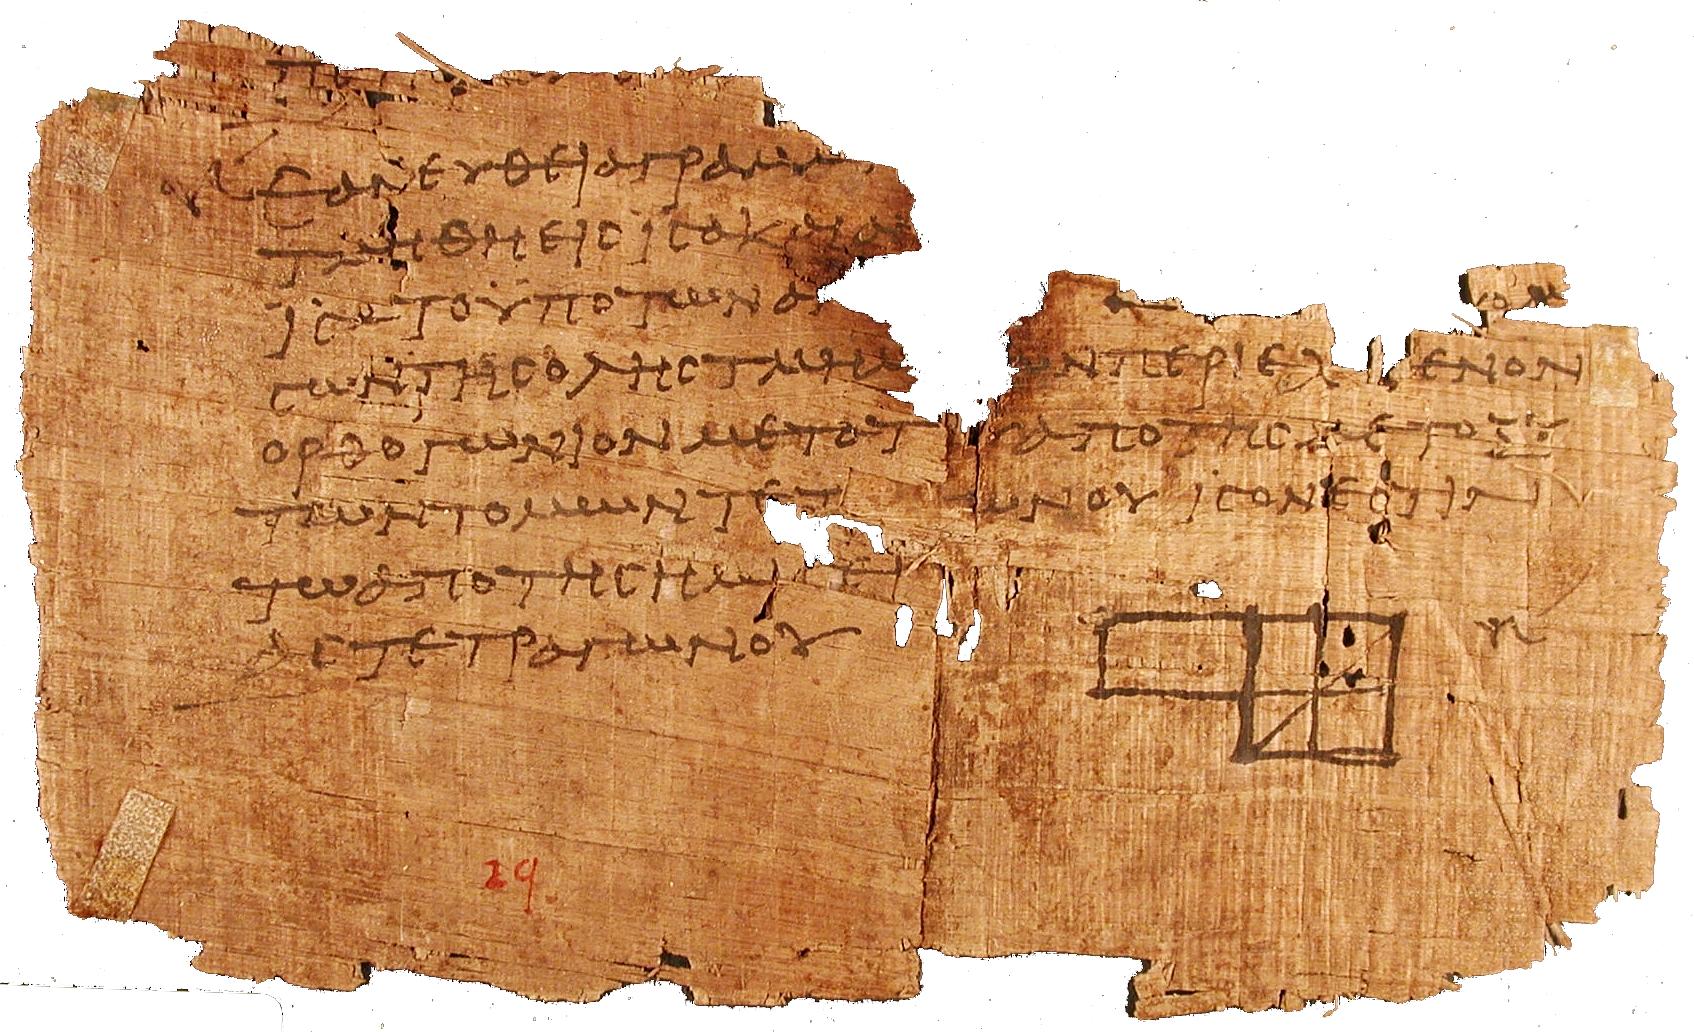 ΕΑΝ ΕΥΘΕΙΑ ΓΡΑΜΜ
ΤΜΗΘΗ ΕΙΣ ΙΣΑ ΚΑΙ Α
ΙΣΑ ΤΟ ΫΠΟ ΤΩΝ ΑΝ ΟΝ
ΣΩΝ ΤΗΣ ΟΛΗΣ ΤΜΗΜ ΩΝ ΠΕΡΙΕΧ ΕΝΟΝ
ΟΡΘΟΓΩΝΙΟΝ ΜΕΤΟ Τ ΑΠΟ ΤΗΣ ΜΕΤΟΞΥ
ΤΩΝ ΤΟΜΩΝ ΤΕΤ ΩΝΟΥ ΙΣΟΝ ΕΣΤΙΝ
ΤΩ ΑΠΟ ΤΗΣ ΗΜΙΣΕΙ
ΑΣ ΤΕΤΡΑΓΩΝΟΥ
29